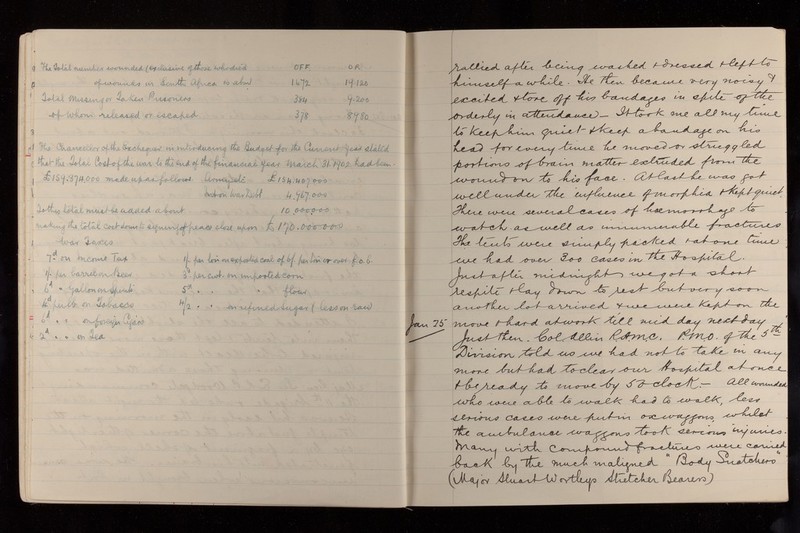 The Total number wounded (exclusive of those who died OFF. OR.
of wounds in South Africa is about 1672 19.120
Total Missing or Taken Prisoners 9.200
of whom released or escaped 378 8980
The Chancellor of the Exchequer in introducing the Budget for the Current Year stated
that the Total Cost of the war to the end of the financial Year March 31. 1902 had been
made up as follows £154.407.000
4.767.000
To this total must be added about 10.000.000
making the total cost £170.000.000
War Taxes
7d on Income Tax
per barrel on Beer 3d per cwt. on imported corn
6d " Gallon on Spirits 5d " " " flour
per lb. on Tobacco 4/2 " " on refined sugar (less on raw
6d " " on foreign Cigars
2d " " on Tea
rallied after being washed & dressed & left to
himself a while. He then became very noisy &
excited & tore off his bandages in spite of the
orderly in attendance — It took me all my time
to keep him quiet & keep a bandage on his
head for every time he moved or struggled
portions of brain matter extruded from the
wound on to his face. At last he was got
well under the influence of morphia & kept quiet.
There were several cases of hæmorrhage to
watch as well as innumerable fractures
The tents were simply packed & at one time
we had over 300 cases in the Hospital.
Just after midnight we got a short
respite & lay down to rest but very soon
another lot arrived & we were kept on the
Jan 25 move & hard at work till mid day next day
Just then. Col. Allin R.A.M.C. P.M.O. of the 5th
Division told us we had not to take in any
more but had to clear our Hospital at once
& be ready to move by 5 o'clock. — All wounded
who were able to walk had to walk, less
serious cases were put in ox waggons, whilst
the ambulance waggons took serious injuries.
Many with compound fractures were carried
back by the much maligned "Body Snatchers"
(Major Stuart Wortleys Stretcher Bearers)